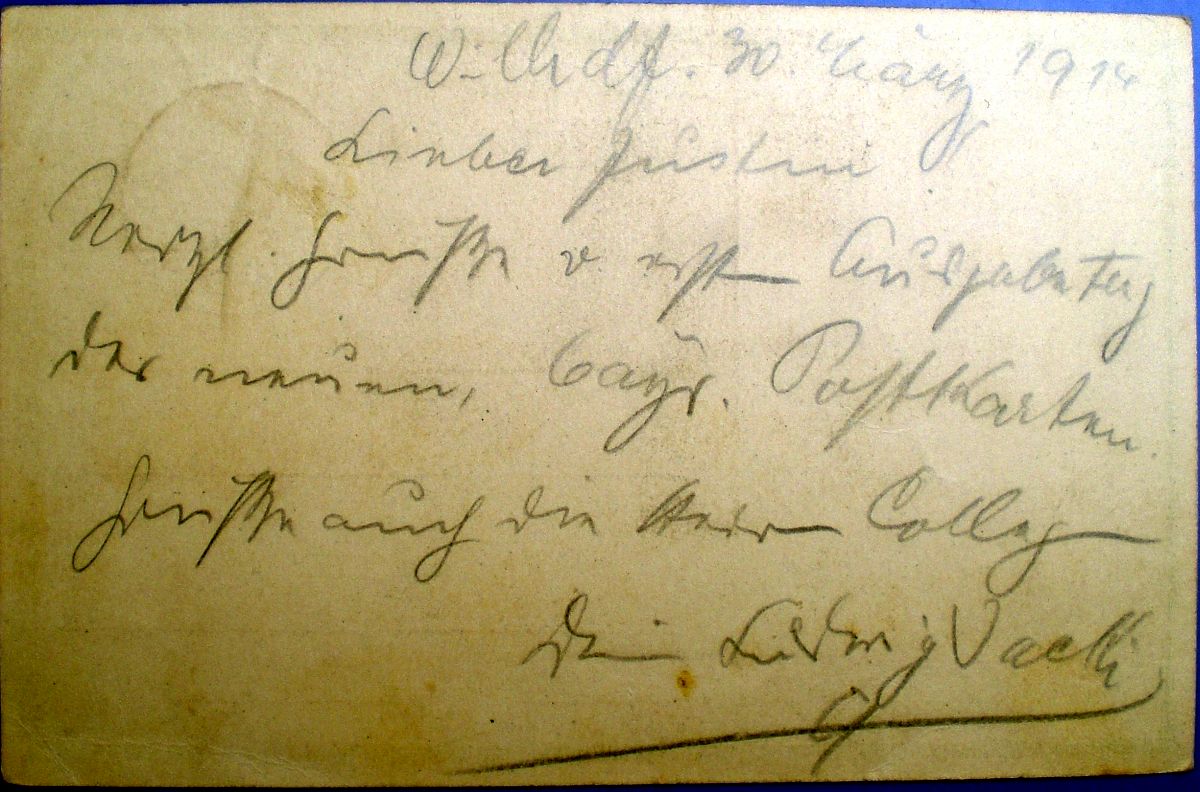 30. März 1914
Lieber Justin
Herzl. Grüße v. ersten Ausgabetag
der neuen, bayr. Postkarten.
Grüße auch die Herrn Colleg
Dein Ludwig